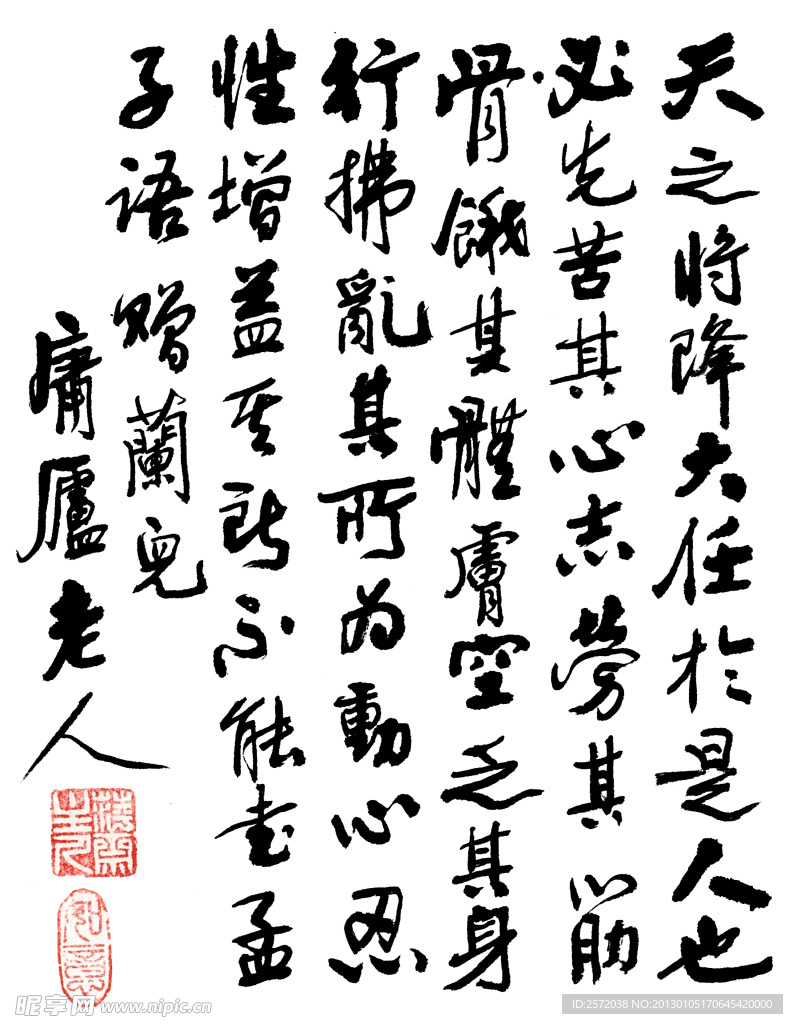 天之將降大任於是人也
必先苦其心志勞其筋
骨餓其體膚空乏其身
行拂亂其所为動心忍
性增益其所不能書孟
子語贈蘭兒
庸廬老人
昵享网 www.nipic.cn
ID:2572038 NO:20130105170645420000